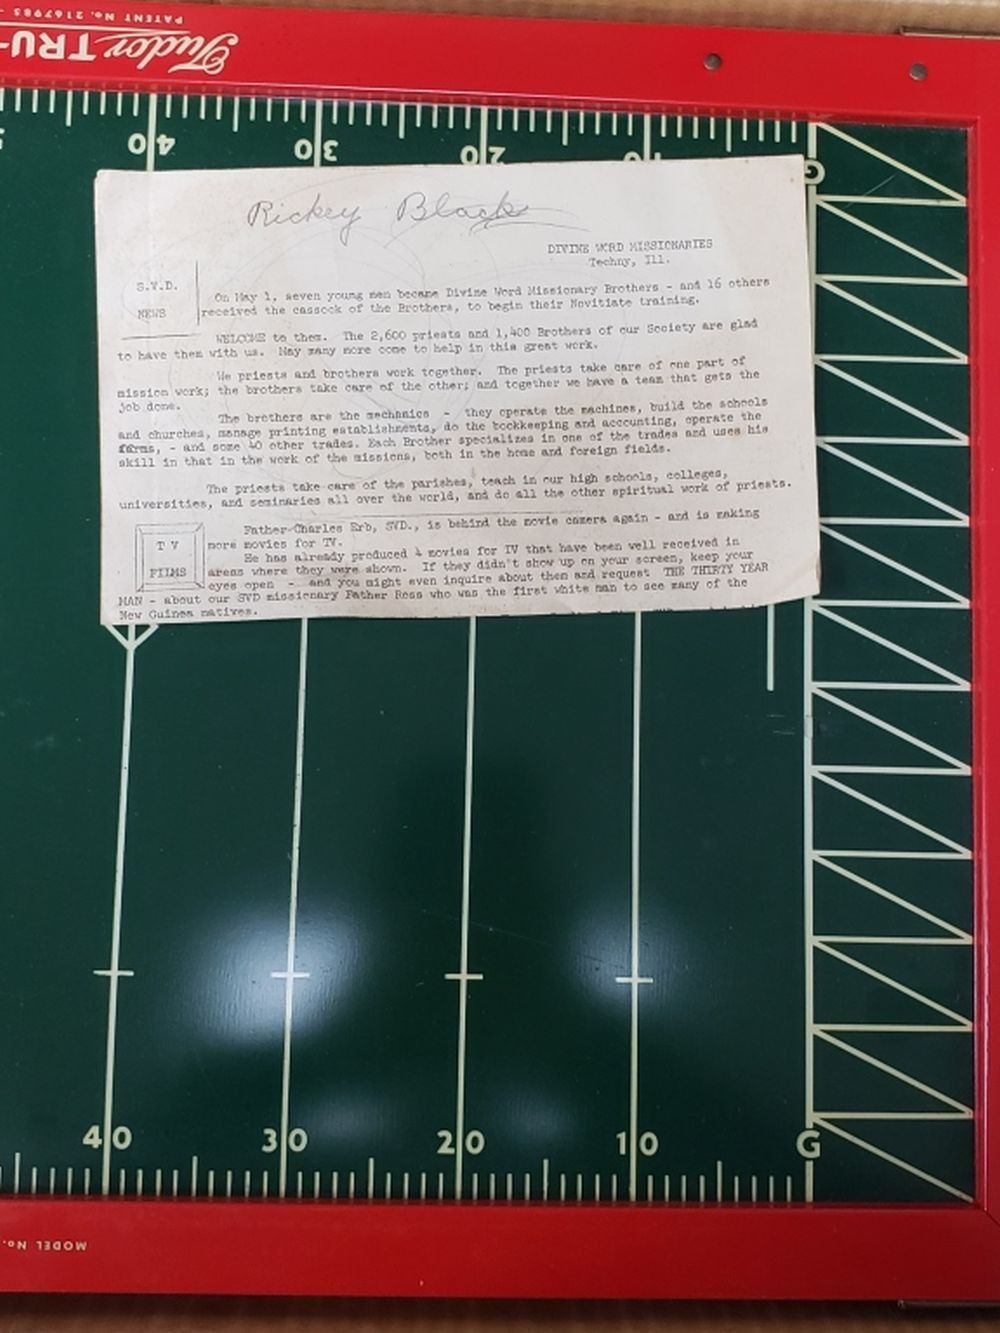 PATENT No. 2167985
Tudor TRU-
40 30 20 10 G
Rickey Black
DIVINE WORD MISSIONARIES
Techny, Ill.
S.V.D.
NEWS
On May 1, seven young men became Divine Word Missionary Brothers - and 16 others
received the cassock of the Brothers, to begin their Novitiate training.
WELCOME to them. The 2,600 priests and 1,400 Brothers of our Society are glad
to have them with us. May many more come to help in this great work.
We priests and brothers work together. The priests take care of one part of
mission work; the brothers take care of the other; and together we have a team that gets the
job done.
The brothers are the mechanics - they operate the machines, build the schools
and churches, manage printing establishments, do the bookkeeping and accounting, operate the
farms, - and some 40 other trades. Each Brother specializes in one of the trades and uses his
skill in that in the work of the missions, both in the home and foreign fields.
The priests take care of the parishes, teach in our high schools, colleges,
universities, and seminaries all over the world, and do all the other spiritual work of priests.
TV
FILMS
Father Charles Erb, SVD., is behind the movie camera again - and is making
more movies for TV.
He has already produced 4 movies for TV that have been well received in
areas where they were shown. If they didn't show up on your screen, keep your
eyes open - and you might even inquire about them and request THE THIRTY YEAR
MAN - about our SVD missionary Father Ross who was the first white man to see many of the
New Guinea natives.
40 30 20 10 G
MODEL No.